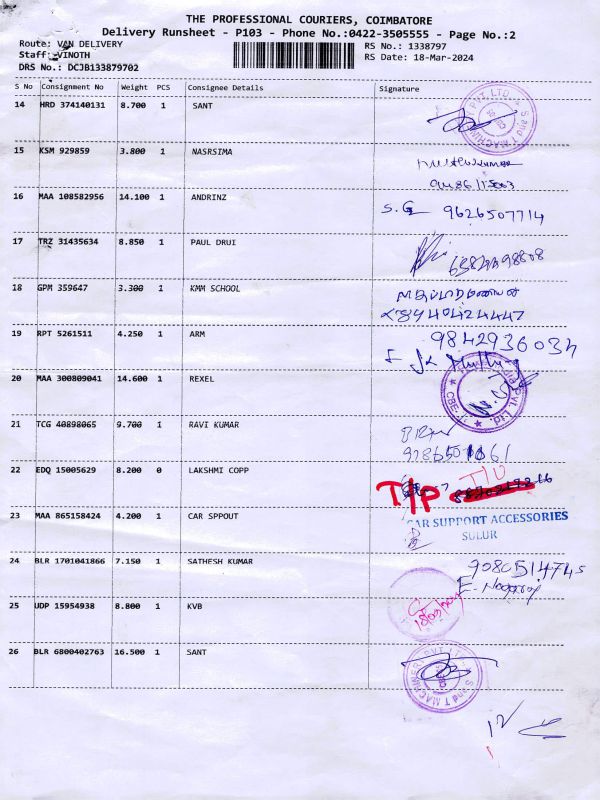 THE PROFESSIONAL COURIERS, COIMBATORE
Delivery Runsheet - P103 - Phone No.:0422-3505555 - Page No.:2
Route: VAN DELIVERY
RS No.: 1338797
Staff: VINOTH
RS Date: 18-Mar-2024
DRS No.: DCJB133879702
S No Consignment No Weight PCS Consignee Details Signature
14 HRD 374140131 8.700 1 SANT
15 KSM 929859 3.800 1 NASRSIMA
16 MAA 108582956 14.100 1 ANDRINZ
S.G 9626507714
17 TRZ 31435634 8.850 1 PAUL DRUI
18 GPM 359647 3.300 1 KMM SCHOOL
19 RPT 5261511 4.250 1 ARM
20 MAA 300809041 14.600 1 REXEL
21 TCG 40898065 9.700 1 RAVI KUMAR
22 EDQ 15005629 8.200 0 LAKSHMI COPP
T/P
23 MAA 865158424 4.200 1 CAR SPPOUT
CAR SUPPORT ACCESSORIES
SULUR
24 BLR 1701041866 7.150 1 SATHESH KUMAR
9080514745
E. Nagaraj
25 UDP 15954938 8.800 1 KVB
26 BLR 6800402763 16.500 1 SANT